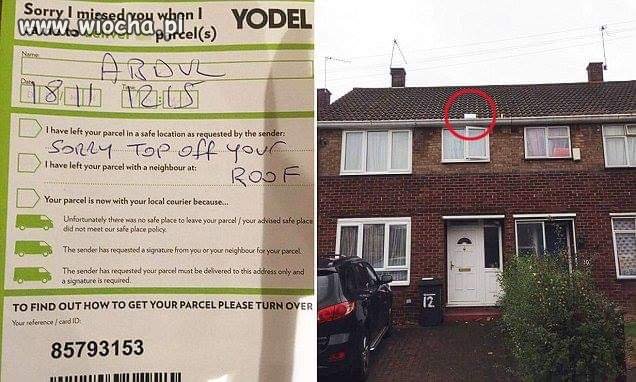 Sorry I missed you when I
YODEL
www.wiocha.pl
deliver parcel(s)
Name:
ABDUL
Date:
Time:
18 11 12 15
I have left your parcel in a safe location as requested by the sender:
SORRY TOP OFF YOUR
I have left your parcel with a neighbour at:
ROOF
Your parcel is now with your local courier because...
Unfortunately there was no safe place to leave your parcel / your advised safe place
did not meet our safe place policy.
The sender has requested a signature from you or your neighbour for your parcel.
The sender has requested your parcel must be delivered to this address only and
a signature is required.
TO FIND OUT HOW TO GET YOUR PARCEL PLEASE TURN OVER
Your reference / card ID:
85793153
12